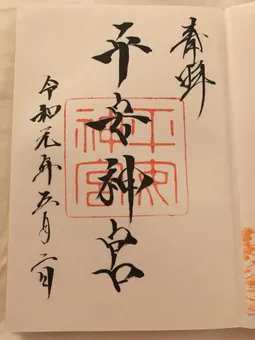 奉拝
平安神宮
平安
神宮
令和元年五月二日